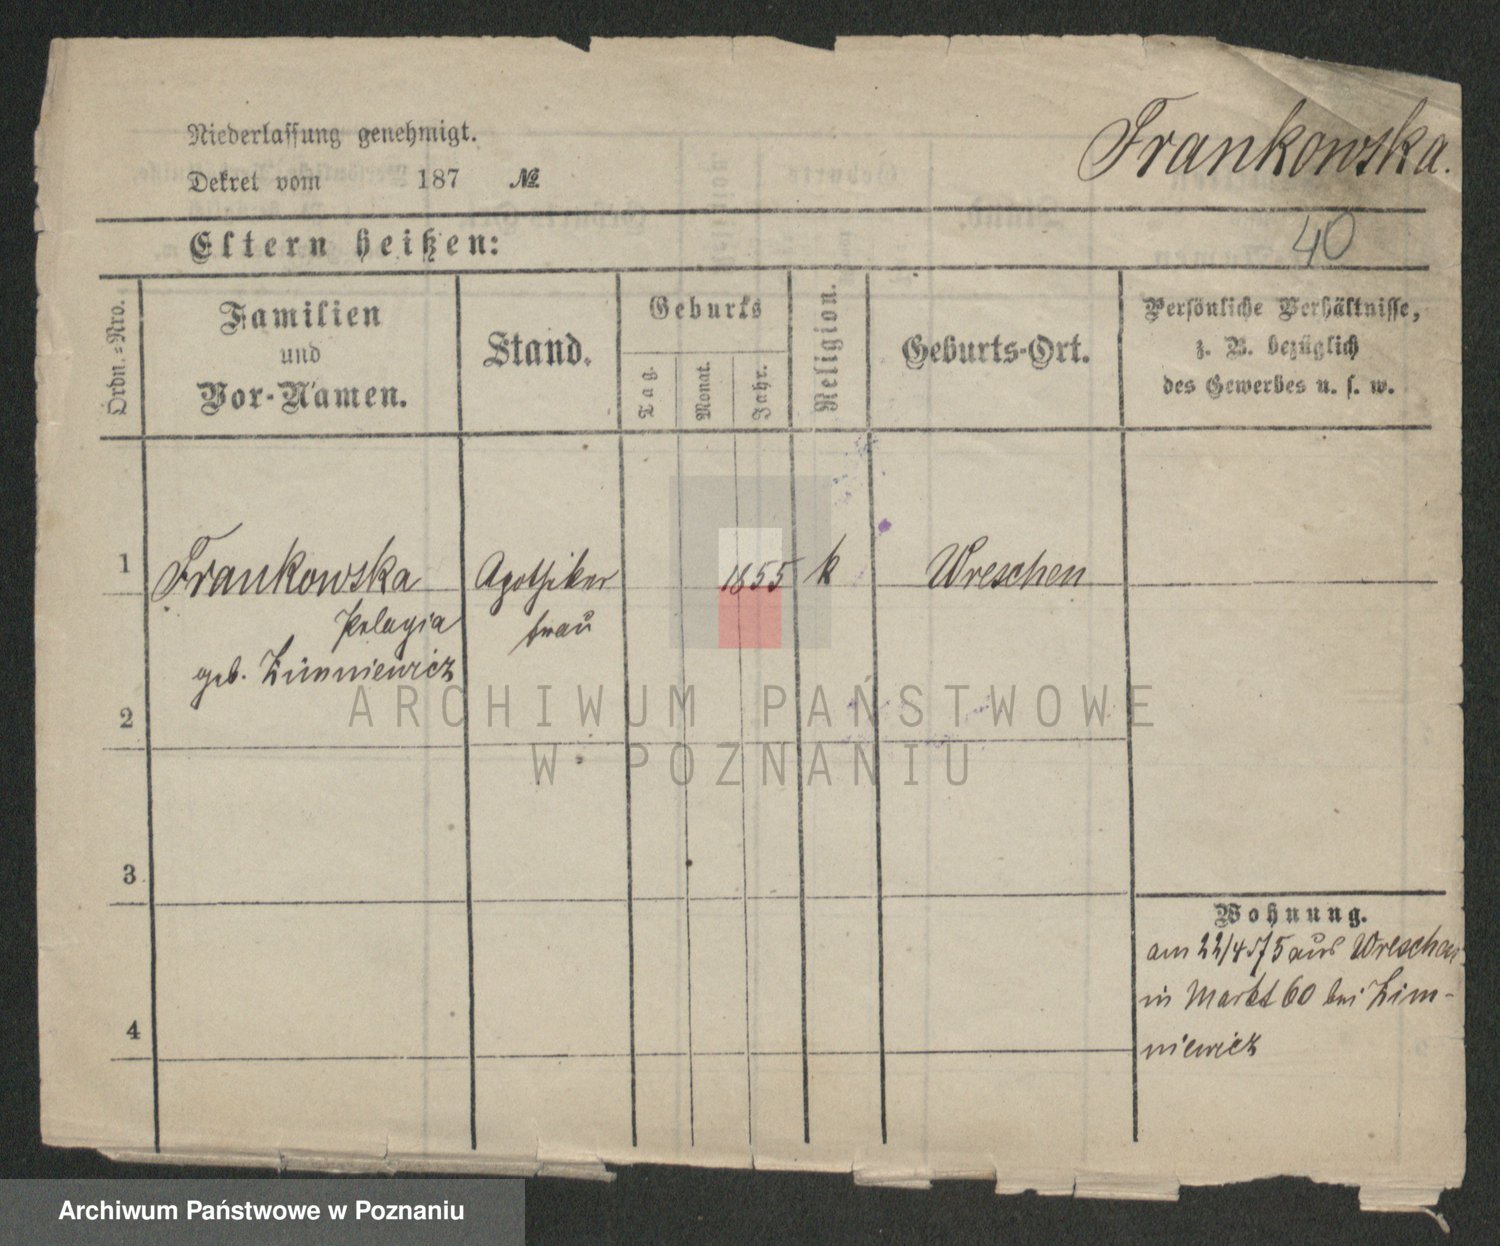 Frankowska.
Niederlassung genehmigt.
Dekret vom 187 №
40
Eltern heißen:
Ordn.-Nro.
Familien
und
Vor-Namen.
Stand.
Geburts
Tag.
Monat.
Jahr.
Religion.
Geburts-Ort.
Persönliche Verhältnisse,
z. B. bezüglich
des Gewerbes u. s. w.
1 Frankowska Apotheker 1855 k Wreschen
Pelagia frau
geb. Zimniewicz
2
ARCHIWUM PAŃSTWOWE
W POZNANIU
3
Wohnung.
am 22/4 75 aus Wreschen
in Markt 60 bei Zim-
4
niewicz
Archiwum Państwowe w Poznaniu